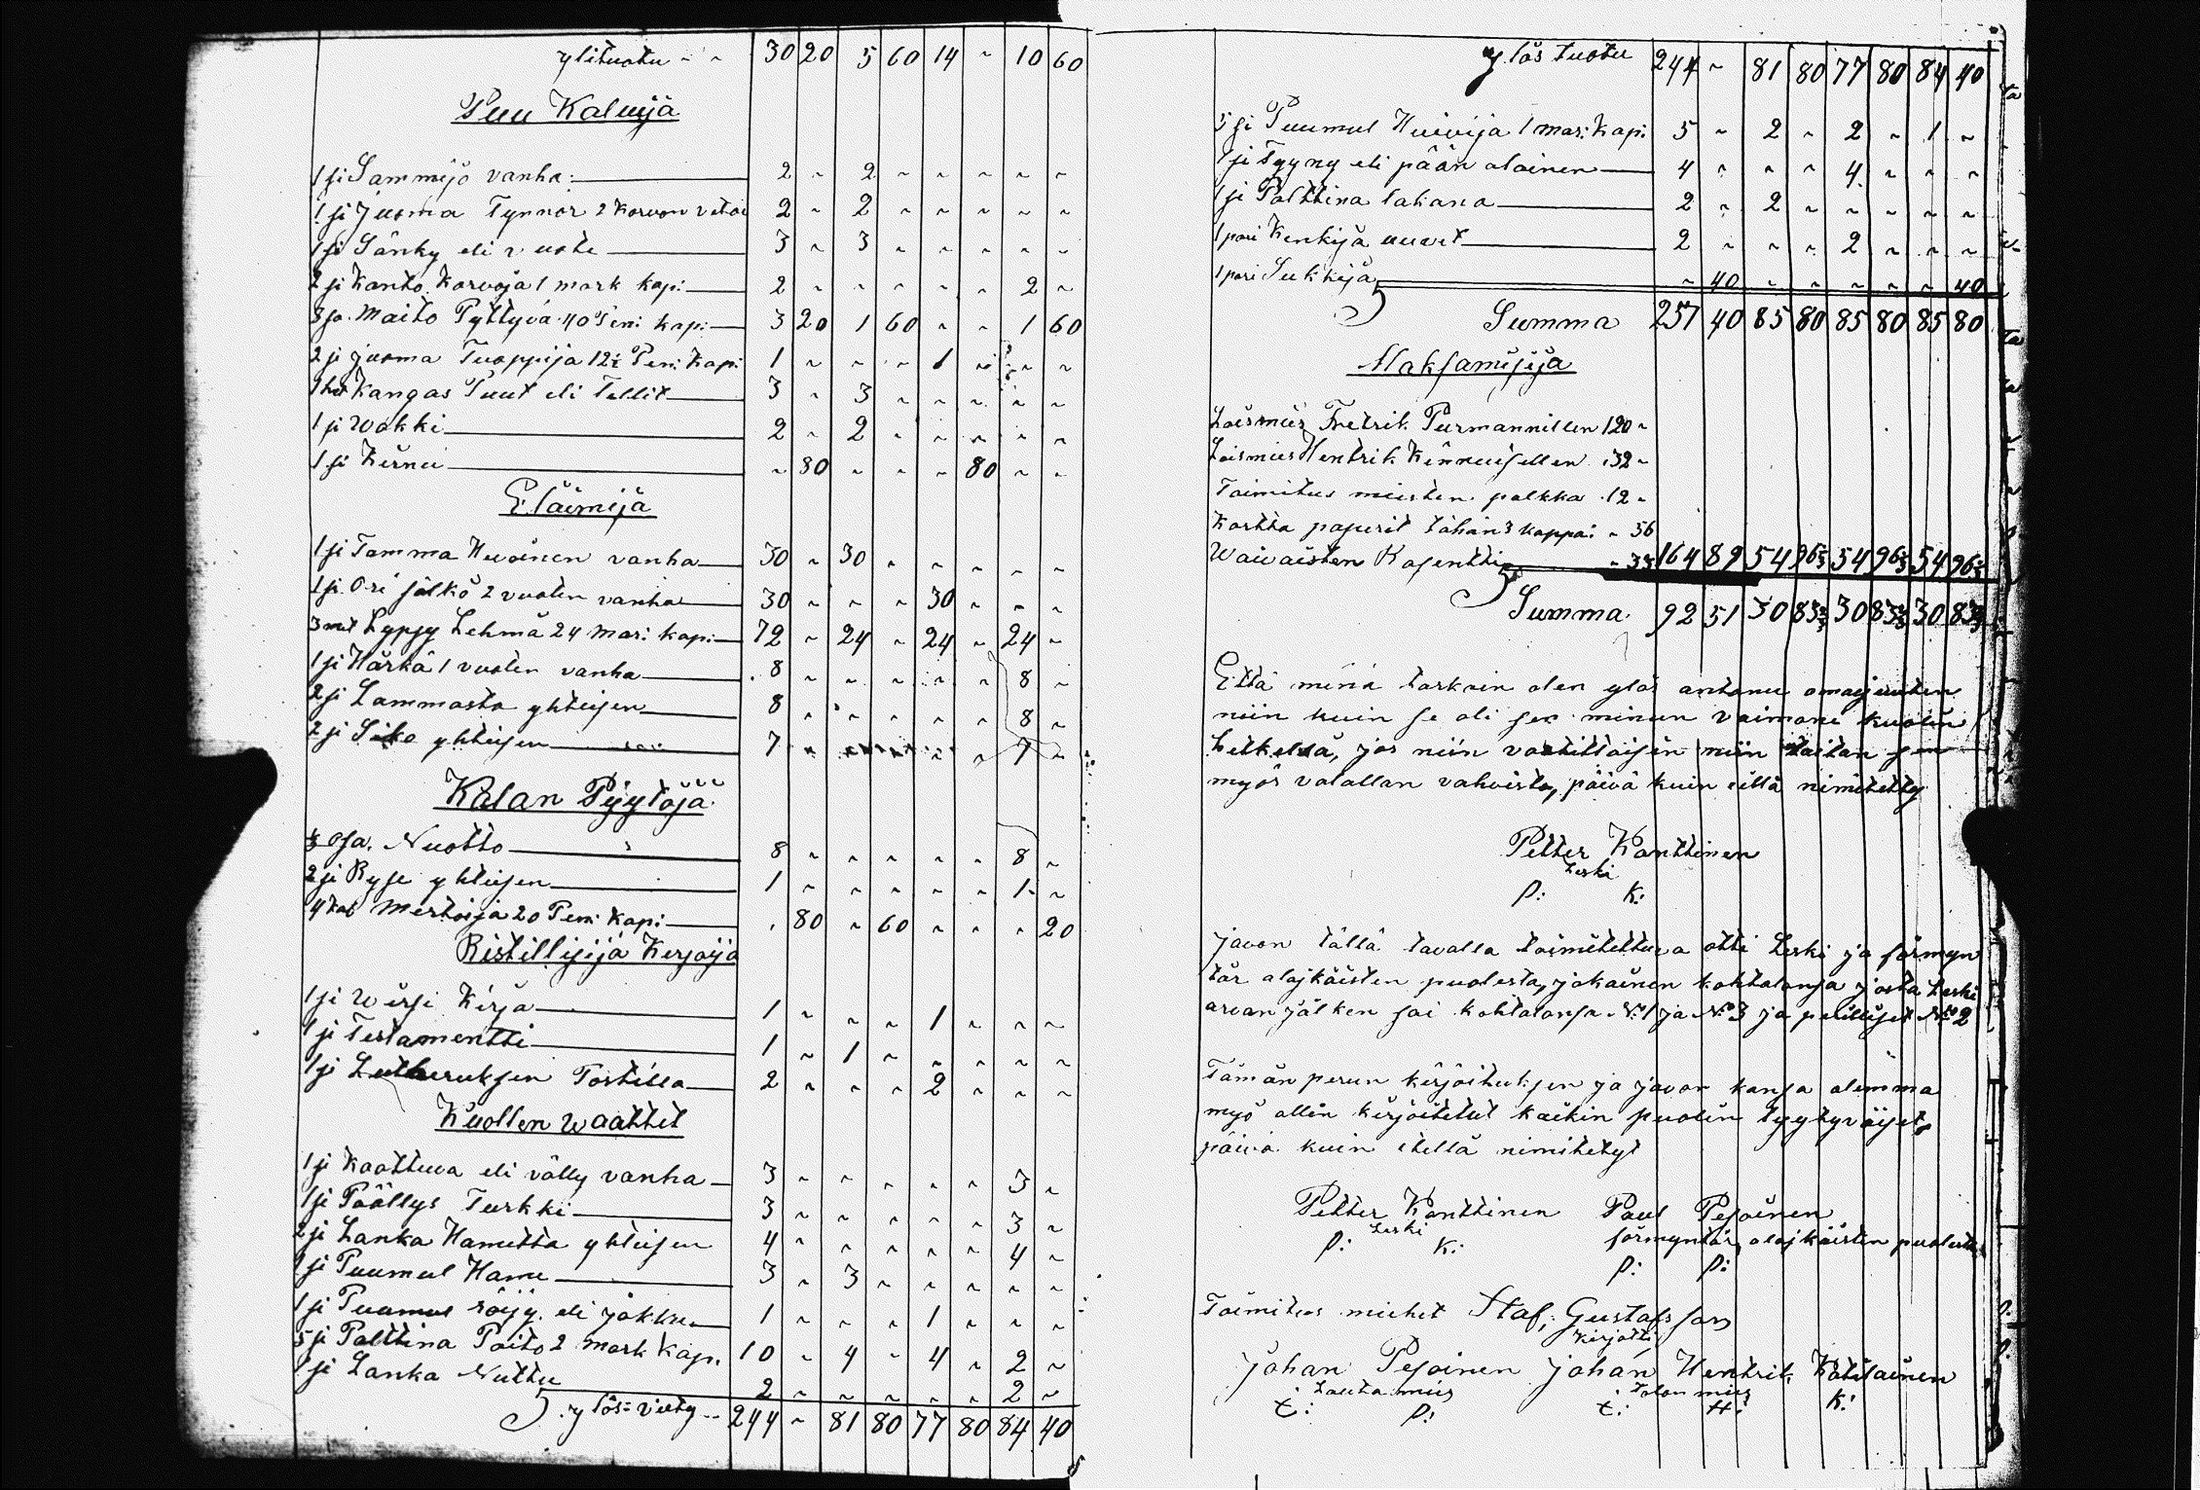 ylituotu ~ ~ 30 20 5 60 14 ~ 10 60
Puu Kaluija
1 ji Sammijo vanha: 2 ~ 2 ~ ~ ~ ~ ~
1 ji Juoma Tynnör 2 korvon vetoi 2 ~ 2 ~ ~ ~ ~ ~
1 ji Sänky eli vuote 3 ~ 3 ~ ~ ~ ~ ~
2 ji Kanto Korvoja 1 mark kapi: 2 ~ ~ ~ ~ ~ 2 ~
8 ja. Maito Pyttyvä 40 Peni kapi: 3 20 1 60 ~ ~ 1 60
2 ji juoma Tuoppija 12½ Peni Kapi 1 ~ ~ ~ 1 ~ ~ ~
Kangas Puut eli Tellit 3 ~ 3 ~ ~ ~ ~ ~
1 ji Wokki 2 ~ 2 ~ ~ ~ ~ ~
1 ji Kirnu ~ 80 ~ ~ ~ 80 ~ ~
Eläimijä
1 ji Tamma Hevoinen vanha 30 ~ 30 ~ ~ ~ ~ ~
1 ji Ori jälkö 2 vuoten vanha 30 ~ ~ ~ 30 ~ ~ ~
3 mt Lypsy Lehmä 24 mar: kapi: 72 ~ 24 ~ 24 ~ 24 ~
1 ji Härkä 1 vuoten vanha 8 ~ ~ ~ ~ ~ 8 ~
2 ji Lammasta yhteijen 8 ~ ~ ~ ~ ~ 8 ~
2 ji Sika yhteijen 7 ~ ~ ~ ~ 7 ~
Kalan Pyytöjä
⅓ Osa. Nuotto 8 ~ ~ ~ ~ ~ 8 ~
2 ji Ryse yhteijen 1 ~ ~ ~ ~ ~ 1 ~
4 kal Mertoija 20 Peni Kapi: ~ 80 ~ 60 ~ ~ ~ 20
Ristillijijä Kirjoija
1 ji Wirsi Kirja 1 ~ ~ ~ 1 ~ ~ ~
1 ji Testamentti 1 ~ 1 ~ ~ ~ ~ ~
1 ji Lutheruksen Postilla 2 ~ ~ ~ 2 ~ ~ ~
Kuollen waattet
1 ji Kaattuva eli völly vanha 3 ~ ~ ~ ~ ~ 3 ~
1 ji Päällys Turkki 3 ~ ~ ~ ~ ~ 3 ~
2 ji Lanka Hametta yhteijen 4 ~ ~ ~ ~ ~ 4 ~
1 ji Puumul Hame 3 ~ 3 ~ ~ ~ ~ ~
1 ji Puumul röijy. eli jakku 1 ~ ~ ~ 1 ~ ~ ~
5 ji Palttina Paito 2 mark Kapi. 10 ~ 4 ~ 4 ~ 2 ~
1 ji Lanka Nuttu 2 ~ ~ ~ ~ ~ 2 ~
ylös=viety 244 ~ 81 80 77 80 84 40
ylös tuotu 244 ~ 81 80 77 80 84 40
5 ji Puumul Huivija 1 mar: Kapi 5 ~ 2 ~ 2 ~ 1 ~
1 ji Tyyny eli pään alainen 4 ~ ~ ~ 4 ~ ~ ~
1 ji Palttina lakana 2 ~ 2 ~ ~ ~ ~ ~
1 pari Kenkijä uuvet 2 ~ ~ ~ 2 ~ ~ ~
1 pari Sukkija ~ 40 ~ ~ ~ ~ ~ 40
Summa 257 40 85 80 85 80 85 80
Maksamisija
Loismies Fretrik Purmannillen 120 ~
Loismies Hentrik Kinnuijellen 32 ~
Toimitus miesten palkka 12 ~
Kartta paperit tähän 3 kappa: ~ 56
Waivaisten Rosentti ~ 33 164 89 54 96⅓ 54 96⅓ 54 96⅓
Summa 92 51 30 83⅔ 30 83⅔ 30 83⅔
Että minä tarkoin olen ylös antanu omaijuuten
niin kuin se oli sen minun vaimoni kuolin
hetkellä, jos niin vaatittaisiin niin taitan sen
myös valallan vahvista, päivä kuin eillä nimitetty
Petter Kanttinen
Leski
P: K:
Javon tällä tavalla toimitettuva otti Leski ja förmyn
tär alajkäisten puolesta, jokainen kohtalonsa josta Leski
arvan jälken sai kohtalonsa No 1 ja No 3 ja peilliset No 2
Tämän perun kirjoituksen ja javon kansa olemma
myö allin kirjoitetut kaikin puolin tyytyväiset,
päivä kuin itellä nimitetyt
Petter Kanttinen Paul Pesoinen
Leski förmyntär alajkäisten puolesta
P: K: P: P:
Toimitus miehet Staf, Gustafsson
Kirjotti
Johan Pesoinen Johan Hentrik Kotilainen
Lauta mies Talon mies
t: P: t: H: K: